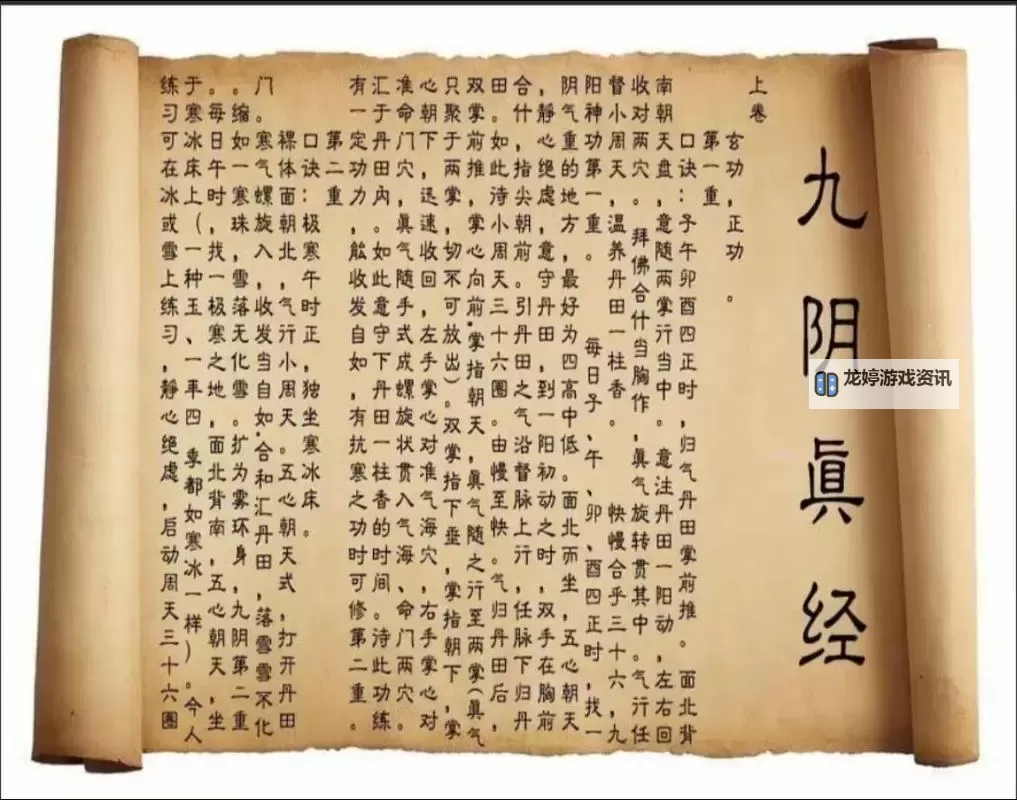 九阴眞经
上卷
玄功，正功。
第一重
口诀：子午卯酉四正时，归气丹田掌前推。面北背
南朝天盘，意随两掌行当中。意注丹田一阳动，左右回
收对两穴。拜佛合什当胸作，眞气旋转贯其中。气行任
督小周天，温养丹田一柱香。快慢合乎三十六，九
阳神功第一重。每日子、午、卯、酉四正时，找一
阴气重的地方，最好为四高中低。面北而坐，五心朝天
，静心绝虑，意守丹田，到一阳初动之时，双手在胸前
合什，指尖朝前。引丹田之气沿督脉上行，任脉下归丹
田。如此待小周天三十六圈。由慢至快。气归丹田后，
双掌前推，掌心向前.掌指朝天，眞气随之行至两掌（眞气
只聚于两掌，切不可放出）。双掌指下垂，掌指朝下，掌
心朝下，迅速收回，左手掌心对准气海穴，右手掌心对
准命门穴，眞气随手式成螺旋状贯入气海、命门两穴。
汇于丹田内。如此意守下丹田一柱香的时间。待此功练
有一定功力，能收发自如，有抗寒之功时可修第二重。
第二重
口诀：极寒午时正，独坐寒冰床。
裸体面朝北，气行小周天。五心朝天式，打开丹田
门寒气螺旋入，收发当自如.合和汇丹田，落雪雪不化
。缩如一寒珠，雪落无化雪。扩为雾环身，九阴第二重
。每日午时，找一极寒之地，面北背南，五心朝天，坐
于寒冰床上（一种玉、一年四季都如寒冰一样）。今人
练习可在冰或雪上练习，静心绝虑，启动周天三十六圈
龙婷游戏资讯